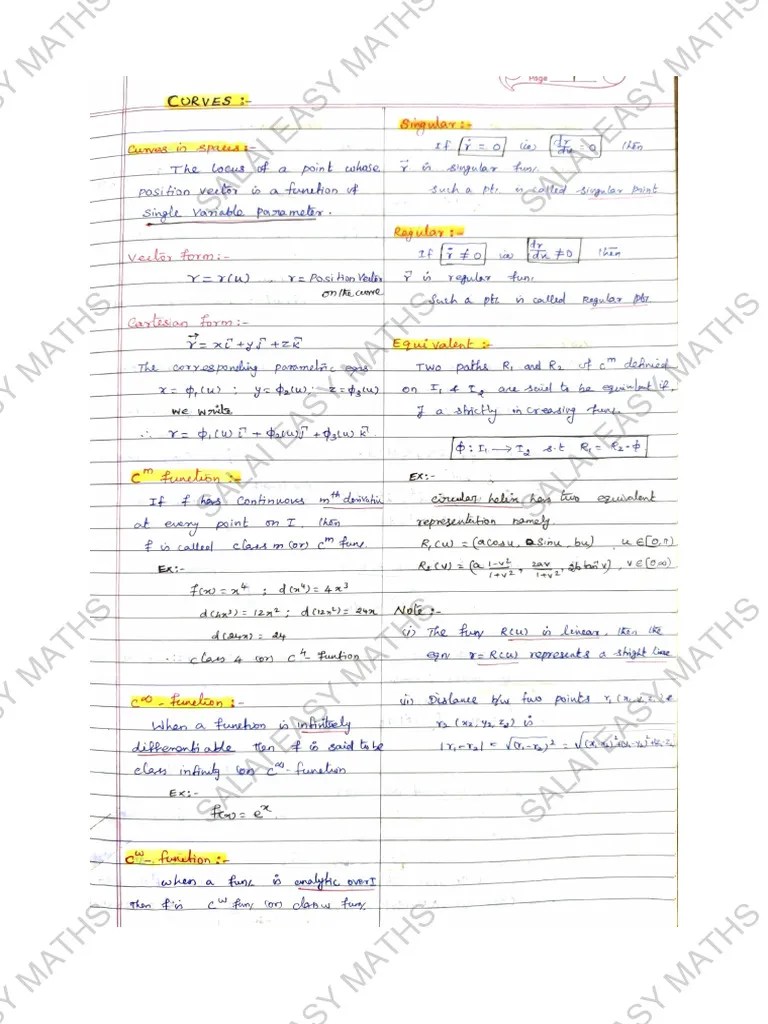 Page 1
CURVES :-
Curves in spaces:-
The locus of a point whose
position vector is a function of
single variable parameter.
Vector form:-
r = r(u) , r = Position Vector
on the curve
Cartesian form:-
r⃗ = xi⃗ + yj⃗ + zk⃗
The corresponding parametric eqns
x = ϕ₁(u) ; y = ϕ₂(u) ; z = ϕ₃(u)
we write
∴ r = ϕ₁(u) i⃗ + ϕ₂(u) j⃗ + ϕ₃(u) k⃗.
Cᵐ function :-
If f has continuous mᵗʰ derivative
at every point on I, then
f is called class m (or) Cᵐ func.
Ex:-
f(x) = x⁴ ; d(x⁴) = 4x³
d(4x³) = 12x² ; d(12x²) = 24x
d(24x) = 24
∴ class 4 (or) C⁴- funtion
C^∞ - function :-
When a function is infinitely
differentiable then f is said to be
class infinity (or) C^∞-function
Ex:-
f(x) = eˣ
C^ω - function :-
when a func is analytic over I
then f is C^ω func (or) class ω func
Singular :-
If ṙ = 0 (ie) dr/du = 0 then
r⃗ is singular func.
such a pt. is called singular point
Regular :-
If ṙ ≠ 0 (ie) dr/du ≠ 0 then
r⃗ is regular func.
Such a pt. is called Regular pt.
Equivalent :-
Two paths R₁ and R₂ of Cᵐ defined
on I₁ & I₂ are said to be equivalent if
∃ a strictly increasing func.
ϕ : I₁ → I₂ s.t R₁ = R₂·ϕ
Ex:-
circular helix has two equivalent
representation namely.
R₁(u) = (a cosu, a sinu, bu) u ∈ [0, π)
R₂(v) = (a 1-v²/1+v², 2av/1+v², 2b tan⁻¹v) , v ∈ [0 ∞)
Note :-
(i) The func R(u) is linear, then the
eqn r = R(u) represents a straight line
(ii) Distance b/w two points r₁ (x₁ y₁ z₁) &
r₂ (x₂, y₂, z₂) is
|r₁ - r₂| = √(r₁ - r₂)² = √(x₁-x₂)²+(y₁-y₂)²+(z₁-z₂
SALAI EASY MATHS
SALAI EASY MATHS
SALAI EASY MATHS
SALAI EASY MATHS
SALAI EASY MATHS
SALAI EASY MATHS